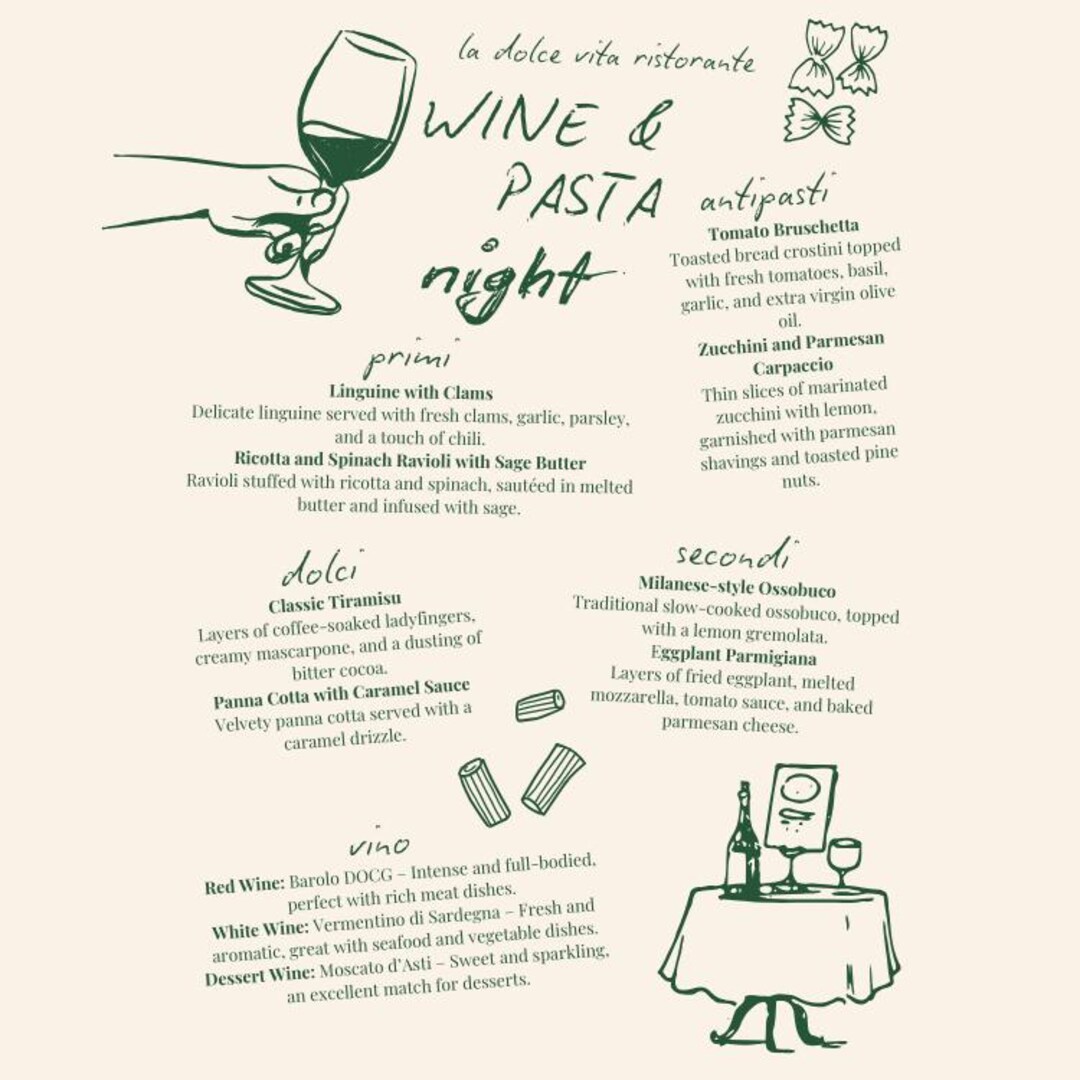 la dolce vita ristorante
WINE &
PASTA
night
antipasti
Tomato Bruschetta
Toasted bread crostini topped
with fresh tomatoes, basil,
garlic, and extra virgin olive
oil.
Zucchini and Parmesan
Carpaccio
Thin slices of marinated
zucchini with lemon,
garnished with parmesan
shavings and toasted pine
nuts.
primi
Linguine with Clams
Delicate linguine served with fresh clams, garlic, parsley,
and a touch of chili.
Ricotta and Spinach Ravioli with Sage Butter
Ravioli stuffed with ricotta and spinach, sautéed in melted
butter and infused with sage.
secondi
Milanese-style Ossobuco
Traditional slow-cooked ossobuco, topped
with a lemon gremolata.
Eggplant Parmigiana
Layers of fried eggplant, melted
mozzarella, tomato sauce, and baked
parmesan cheese.
dolci
Classic Tiramisu
Layers of coffee-soaked ladyfingers,
creamy mascarpone, and a dusting of
bitter cocoa.
Panna Cotta with Caramel Sauce
Velvety panna cotta served with a
caramel drizzle.
vino
Red Wine: Barolo DOCG – Intense and full-bodied,
perfect with rich meat dishes.
White Wine: Vermentino di Sardegna – Fresh and
aromatic, great with seafood and vegetable dishes.
Dessert Wine: Moscato d'Asti – Sweet and sparkling,
an excellent match for desserts.